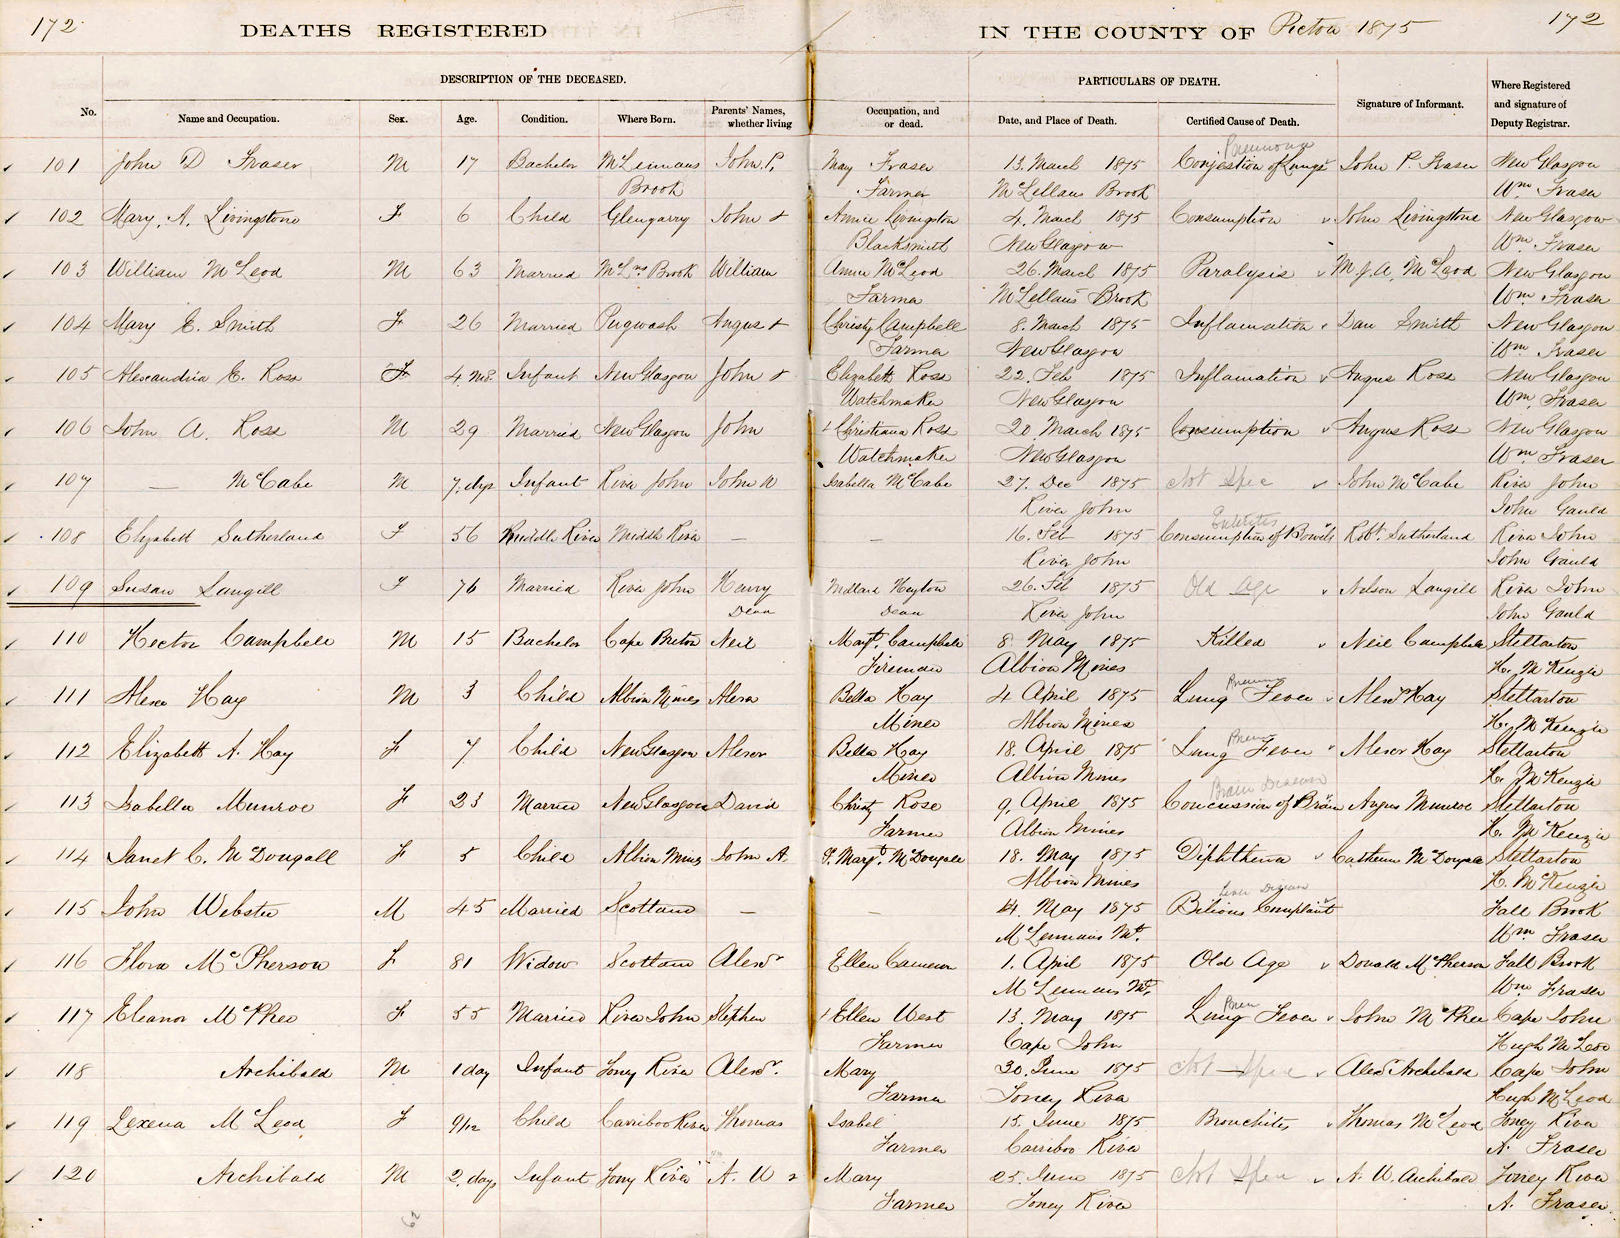 172
DEATHS REGISTERED IN THE COUNTY OF Pictou 1875
172
DESCRIPTION OF THE DECEASED. PARTICULARS OF DEATH.
No. Name and Occupation. Sex. Age. Condition. Where Born. Parents' Names, whether living Occupation, and or dead. Date, and Place of Death. Certified Cause of Death. Signature of Informant. Where Registered and signature of Deputy Registrar.
Pneumonia
101 John D Fraser M 17 Bachelor McLennans John P. May Fraser 13. March 1875 Congestion of Lungs John P. Fraser New Glasgow
Brook Farmer McLellans Brook Wm Fraser
102 Mary. A. Livingstone F 6 Child Glengarry John & Annie Livingston 4. March 1875 Consumption John Livingstone New Glasgow
Blacksmith New Glasgow Wm Fraser
103 William McLeod M 63 Married McLns Brook William Annie McLeod 26. March 1875 Paralysis M. J. A. McLeod New Glasgow
Farmer McLellans Brook Wm Fraser
104 Mary E. Smith F 26 Married Pugwash Angus & Christy Campbell 8. March 1875 Inflamation Dan Smith New Glasgow
Farmer New Glasgow Wm Fraser
105 Alexandria E. Ross F 4 ms. Infant New Glasgow John & Elizabeth Ross 22. Feb 1875 Inflamation Angus Ross New Glasgow
Watchmaker New Glasgow Wm Fraser
106 John A. Ross M 29 Married New Glasgow John & Christiana Ross 20. March 1875 Consumption Angus Ross New Glasgow
Watchmaker New Glasgow Wm Fraser
107 — McCabe M 7. dys Infant River John John A Isabella McCabe 27. Dec 1875 Not Spec John McCabe River John
River John John Gauld
Enteritis
108 Elizabeth Sutherland F 56 Middle River Middle River — — 16. Feb 1875 Consumption of Bowels Robt. Sutherland River John
River John John Gauld
109 Susan Langill F 76 Married River John Harry 26. Feb 1875 Old Age Nelson Langill River John
Dean Dean River John John Gauld
110 Hector Campbell M 15 Bachelor Cape Breton Neil Margt. Campbell 8. May 1875 Killed Neil Campbell Stellarton
Fireman Albion Mines H. McKenzie
Pneum
111 Alexr Hay M 3 Child Albion Mines Alexr Bella Hay 4 April 1875 Lung Fever Alexr Hay Stellarton
Miner Albion Mines H. McKenzie
Pneum
112 Elizabeth A. Hay F 7 Child New Glasgow Alexr Bella Hay 18. April 1875 Lung Fever Alexr Hay Stellarton
Miner Albion Mines H. McKenzie
Brain Disease
113 Isabella Munroe F 23 Married New Glasgow David Christy Rose 9. April 1875 Concussion of Brain Angus Munroe Stellarton
Farmer Albion Mines H. McKenzie
114 Janet C. McDougall F 5 Child Albion Mines John A. & Margt. McDougall 18. May 1875 Diphtheria Catherine McDougall Stellarton
Albion Mines H. McKenzie
Liver Disease
115 John Webster M 45 Married Scotland — — 14. May 1875 Bilious Complaint Fall Brook
McLennans Mt. Wm Fraser
116 Flora McPherson F 81 Widow Scotland Alexdr Ellen Cameron 1. April 1875 Old Age Donald McPherson Fall Brook
McLennans Mt. Wm Fraser
Pneu
117 Eleanor McPhee F 55 Married River John Stephen & Ellen West 13. May 1875 Lung Fever John McPhee Cape John
Farmer Cape John Hugh McLeod
118 Archibald M 1 day Infant Toney River Alexdr. Mary 30. June 1875 Not Spec Alexdr Archibald Cape John
Farmer Toney River Hugh McLeod
119 Lexena McLeod F 9/12 Child Carriboo River Thomas Isabel 15. June 1875 Bronchitis Thomas McLeod Toney River
Farmer Carriboo River A. Fraser
120 Archibald M 2. days Infant Tony River A. W & Mary 25. June 1875 Not Spec A. W. Archibald Toney River
Farmer Toney River A. Fraser
62